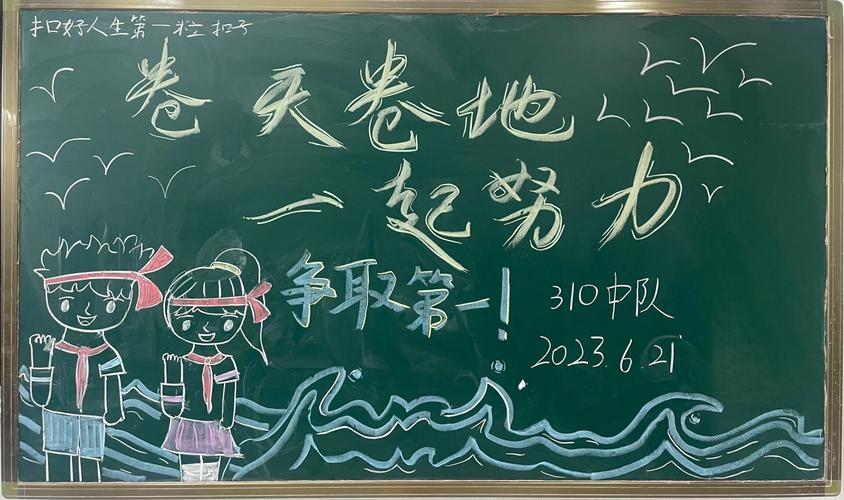 扣好人生第一粒扣子
卷天卷地
一起努力
争取第一!
310中队
2023.6.21